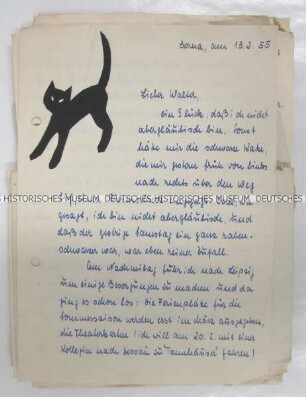 Borna, am 13.2.55
Lieber Walter,
ein Glück, daß ich nicht
abergläubisch bin. Sonst
hätte mir die schwarze Katze,
die mir gestern früh von links
nach rechts über den Weg
S HISTORISCHES MUSEUM, DEUTSCHES HISTORISCHES MUSEUM, DEUTSCHES HIS
gesagt, ich bin nicht abergläubisch, und
daß der gestrige Samstag ein ganz raben-
schwarzer war, war eben reiner Zufall.
Am Nachmittag fuhr ich nach Leipzig
um einige Besorgungen zu machen und da
ging es schon los: Die Ferienplätze für die
Sommersaison werden erst im März ausgegeben,
die Theaterkarten (ich will am 20.2. mit einer
Kollegin nach Dessau zu "Tannhäuser" fahren)